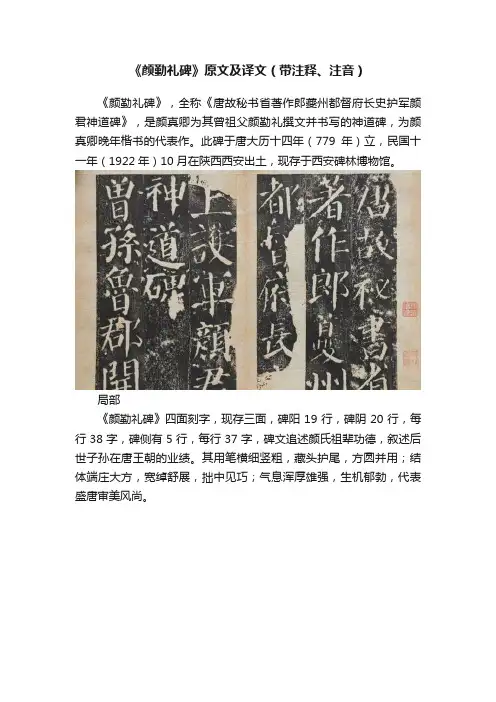 《颜勤礼碑》原文及译文(带注释、注音)
《颜勤礼碑》,全称《唐故秘书省著作郎夔州都督府长史护军颜
君神道碑》,是颜真卿为其曾祖父颜勤礼撰文并书写的神道碑,为颜
真卿晚年楷书的代表作。此碑于唐大历十四年(779 年)立,民国十
一年(1922 年)10 月在陕西西安出土,现存于西安碑林博物馆。
唐故秘書省
著作郎夔州
都督府長
上護軍顏君
神道碑
曾孫魯郡開
局部
《颜勤礼碑》四面刻字,现存三面,碑阳 19 行,碑阴 20 行,每
行 38 字,碑侧有 5 行,每行 37 字,碑文追述颜氏祖辈功德,叙述后
世子孙在唐王朝的业绩。其用笔横细竖粗,藏头护尾,方圆并用;结
体端庄大方,宽绰舒展,拙中见巧;气息浑厚雄强,生机郁勃,代表
盛唐审美风尚。